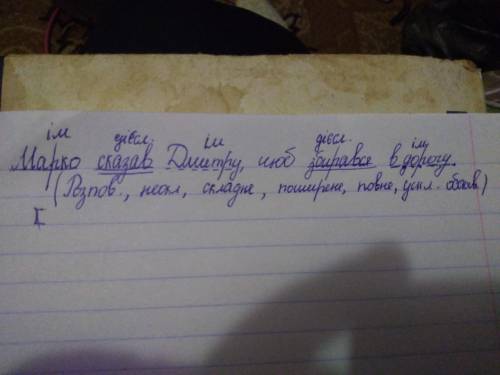 ім дієсл. ім дієсл. ім
Марко сказав Дмитру, щоб збирався в дорогу.
(Розпов., неокл, складне, поширене, повне, ускл. обста.)
[